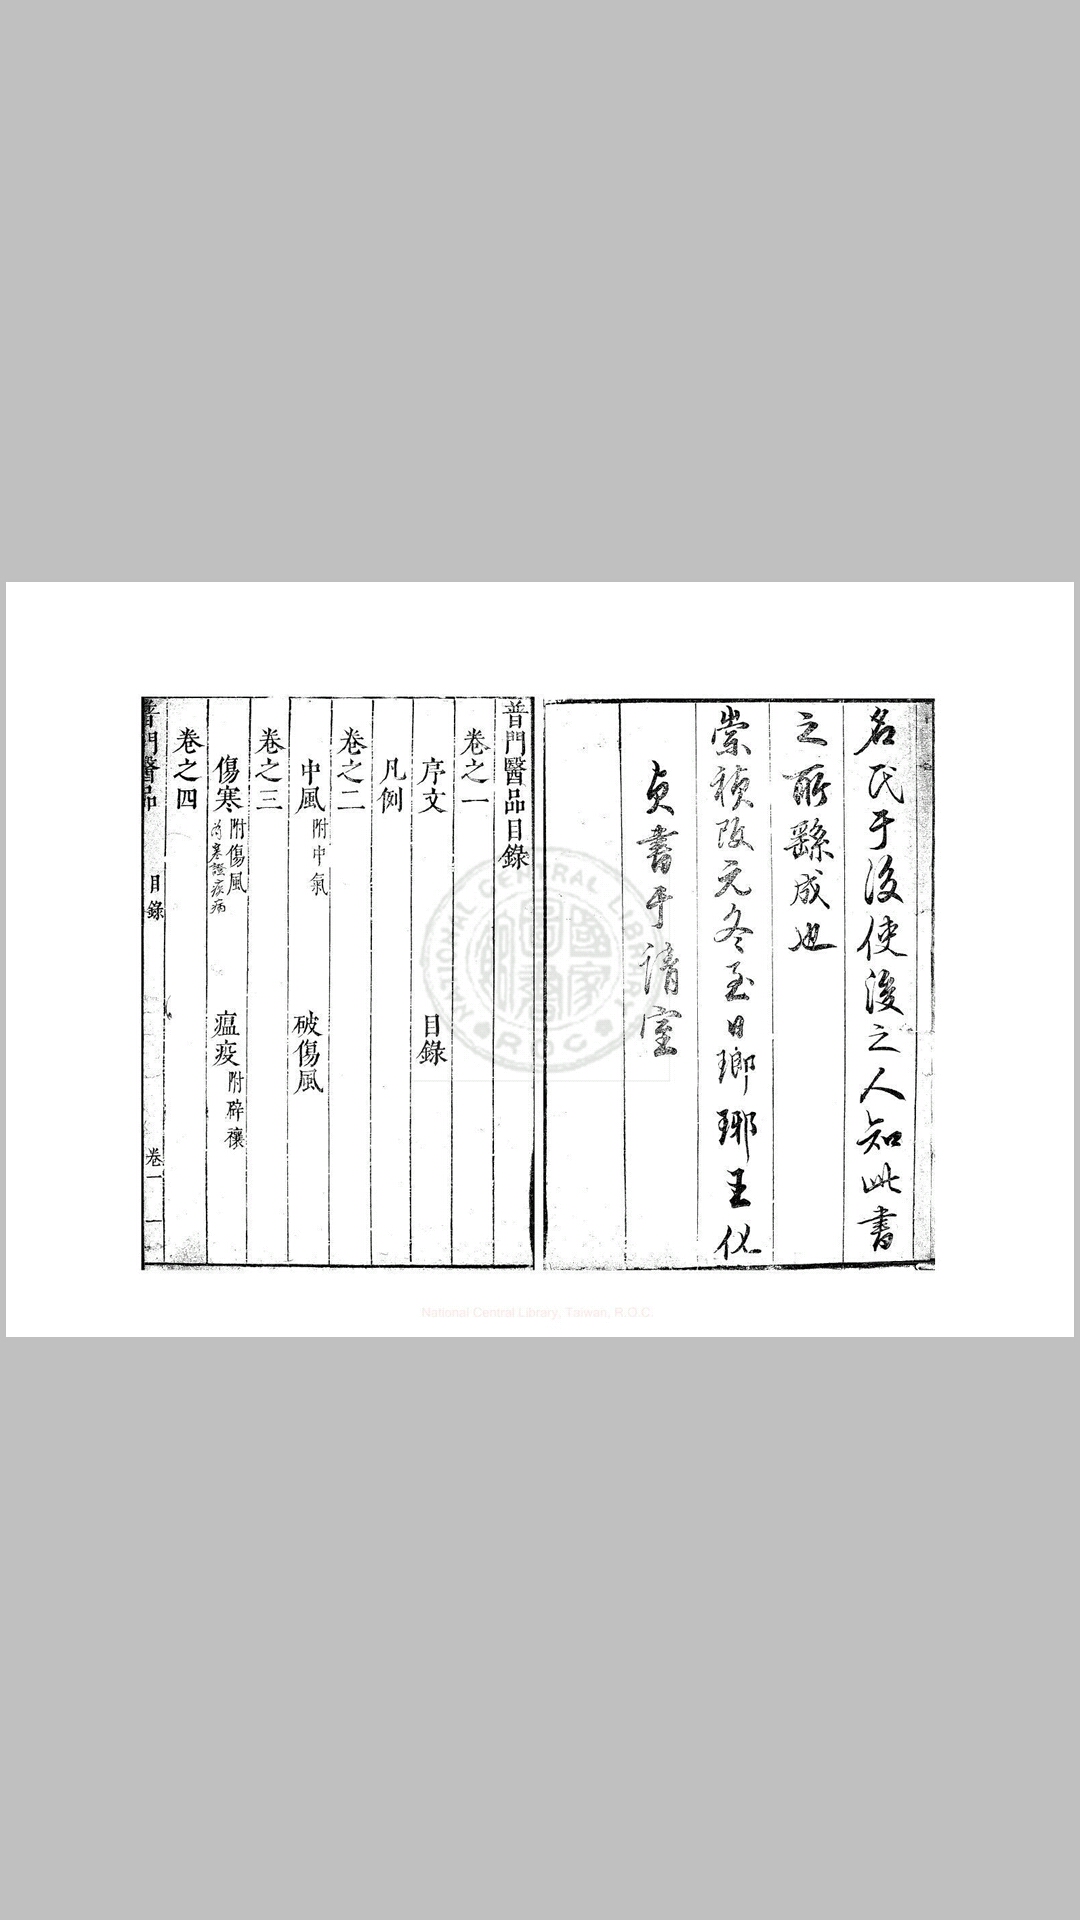 名氏于後使後之人知此書
之所繇成也
崇禎改元冬至日瑯琊王化
貞書于請室
普門醫品目錄
卷之一
序文 目錄
凡例
卷之二
中風附中氣 破傷風
卷之三
傷寒附傷風 瘟疫附辟禳
卷之四
普門醫品 目錄 卷一 一
NATIONAL CENTRAL LIBRARY R.O.C
國家圖書館
National Central Library, Taiwan, R.O.C.